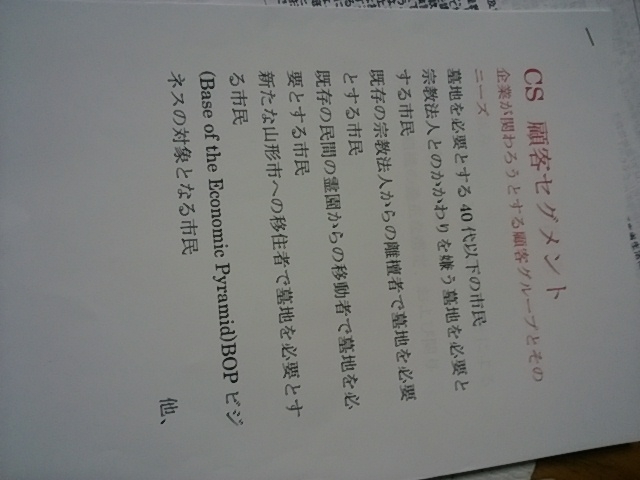 一
CS 顧客セグメント
企業が関わろうとする顧客グループとその
ニーズ
墓地を必要とする 40 代以下の市民
宗教法人とのかかわりを嫌う墓地を必要と
する市民
既存の宗教法人からの離檀者で墓地を必要
とする市民
既存の民間の霊園からの移動者で墓地を必
要とする市民
新たな山形市への移住者で墓地を必要とす
る市民
(Base of the Economic Pyramid)BOP ビジ
ネスの対象となる市民
他、